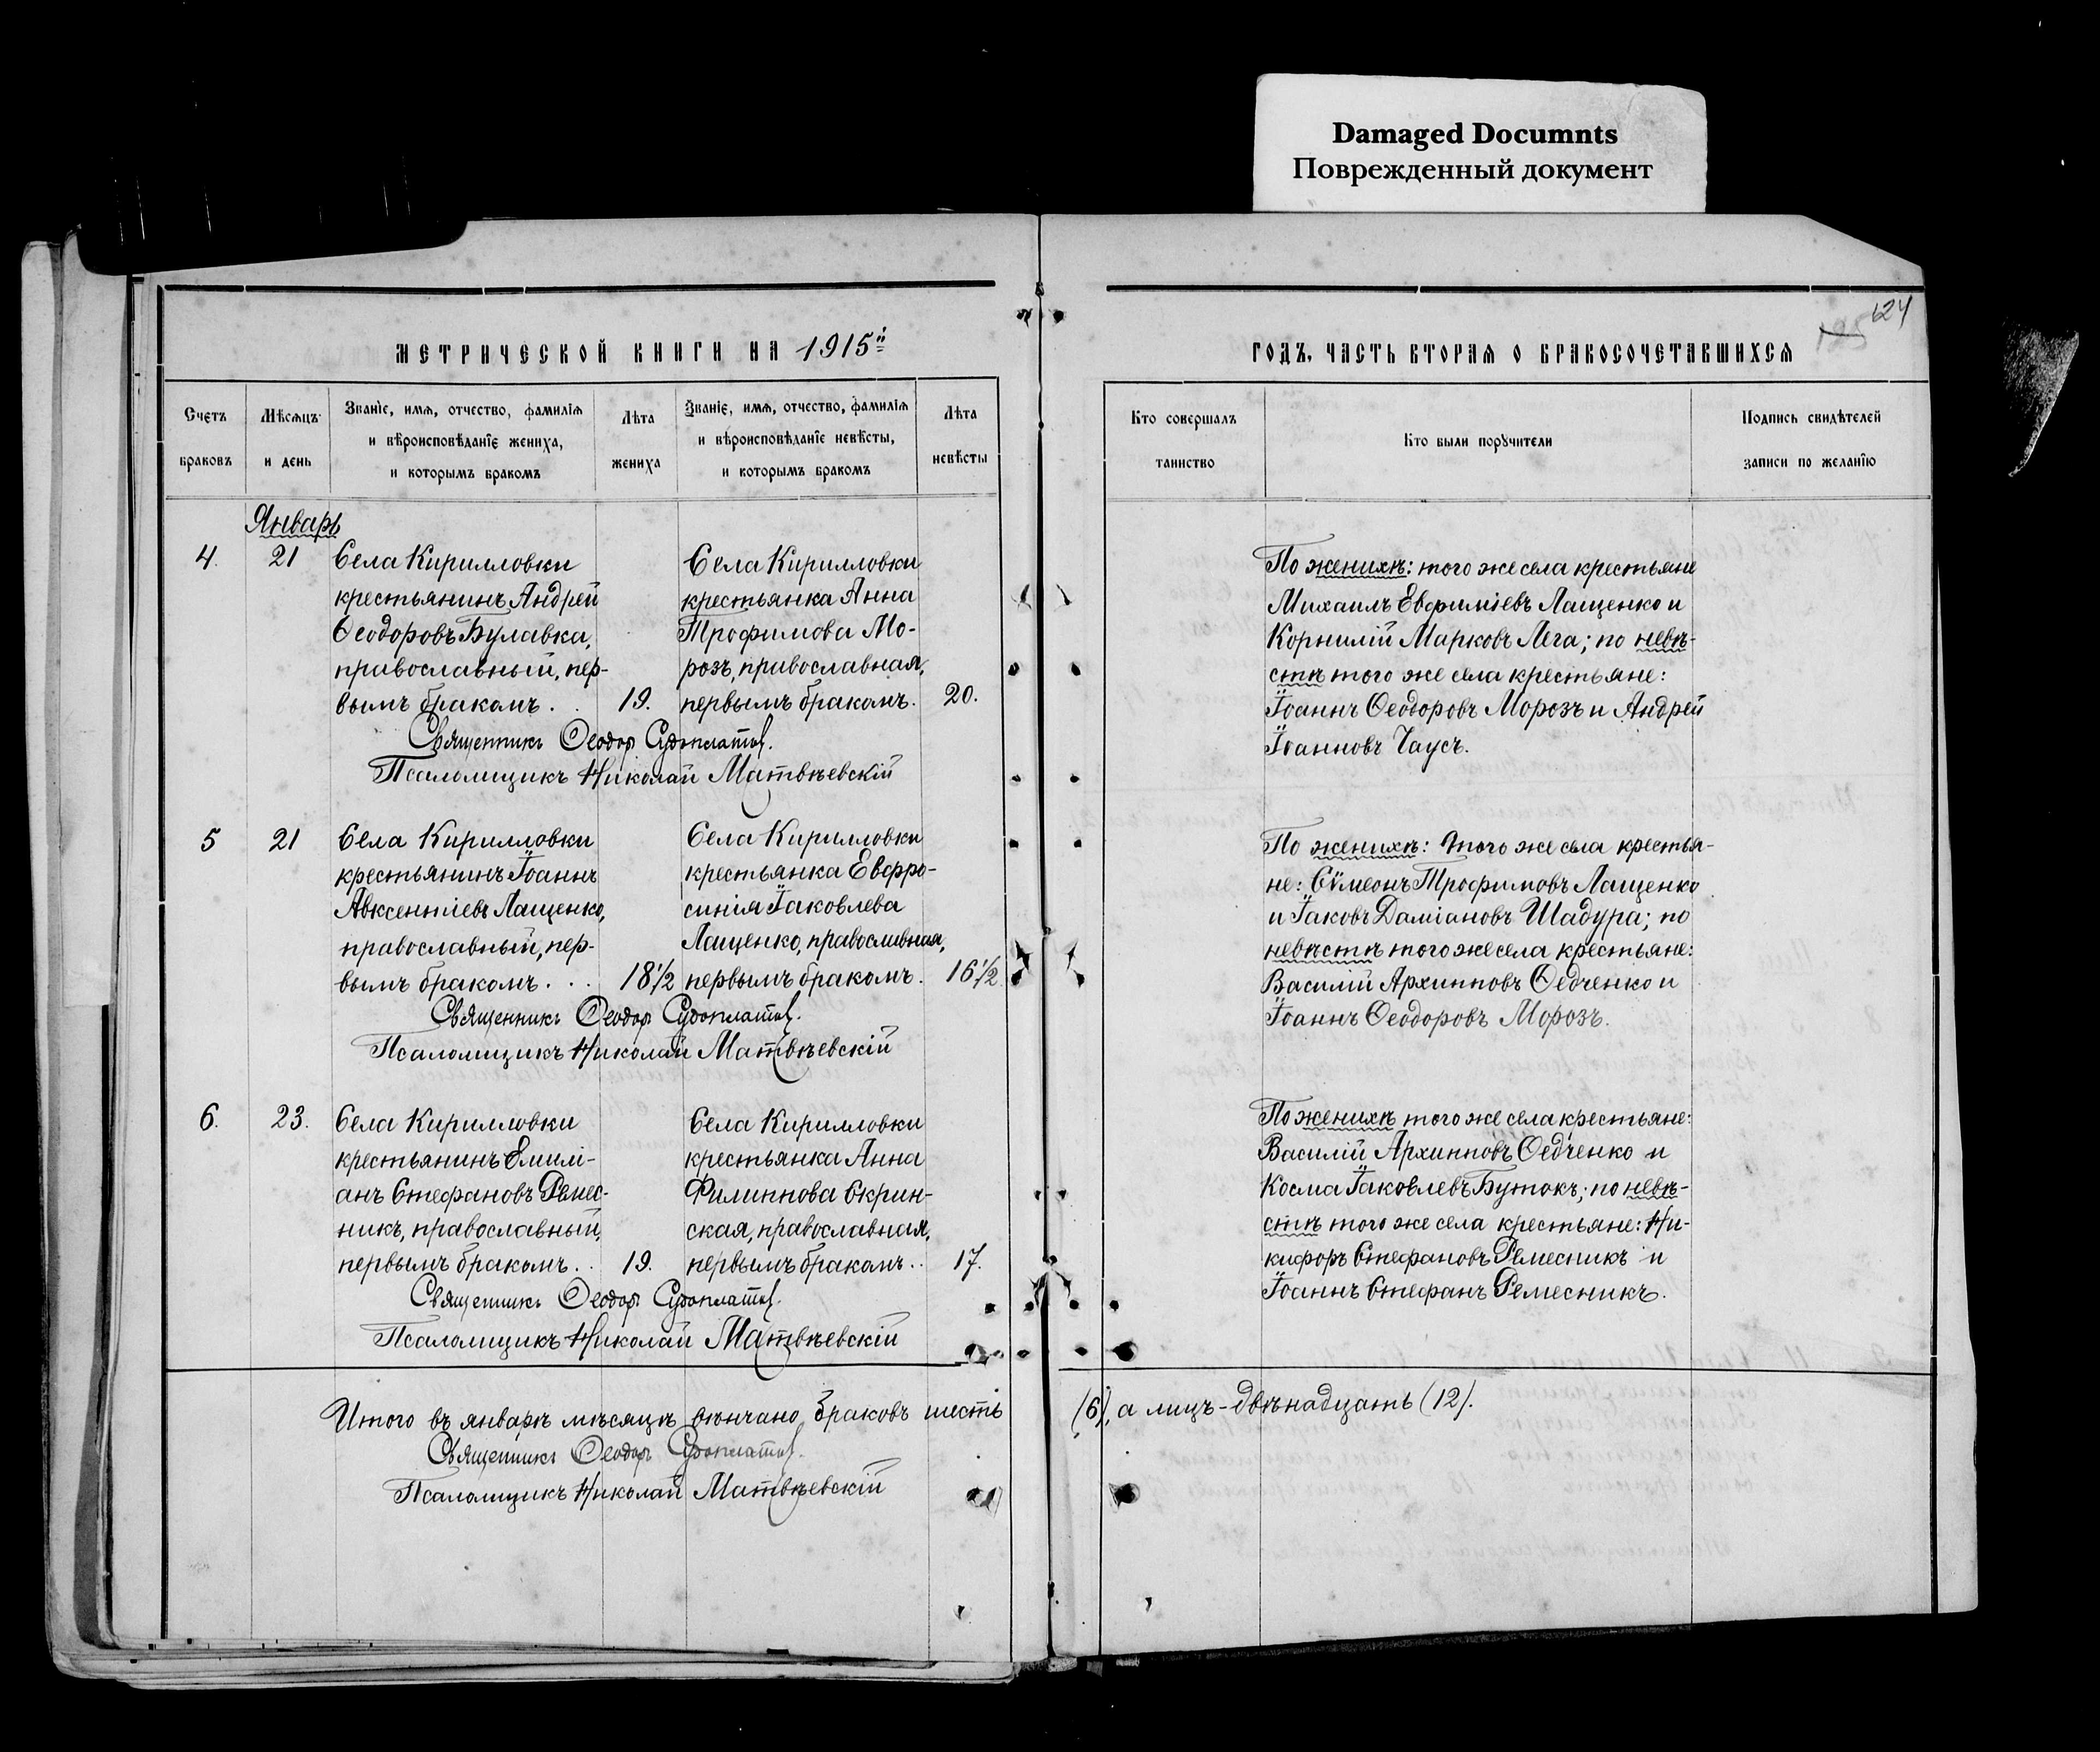 Damaged Documnts
Поврежденный документ
124
125
МЕТРИЧЕСКОЙ КНИГИ НА 1915й
ГОДЪ, ЧАСТЬ ВТОРАЯ О БРАКОСОЧЕТАВШИХСЯ
Счетъ браковъ
Мѣсяцъ и день
Званіе, имя, отчество, фамилія
и вѣроисповѣданіе жениха,
и которымъ бракомъ
Лѣта жениха
Званіе, имя, отчество, фамилія
и вѣроисповѣданіе невѣсты,
и которымъ бракомъ
Лѣта невѣсты
Кто совершалъ
таинство
Кто были поручители
Подпись свидѣтелей
записи по желанію
Январь
4. 21
Села Кирилловки
крестьянинъ Андрей
Ѳеодоровъ Булавка,
православный, пер-
вымъ бракомъ. . 19.
Села Кирилловки
крестьянка Анна
Трофимова Мо-
розъ, православная,
первымъ бракомъ. 20.
По женихѣ: того же села крестьяне
Михаилъ Евфиміевъ Лащенко и
Корнилій Марковъ Лега; по невѣ-
стѣ того же села крестьяне:
Іоаннъ Ѳеодоровъ Морозъ и Андрей
Іоанновъ Чаусъ.
Священникъ Ѳеодоръ Судоплатов.
Псаломщикъ Николай Матвѣевскій
5 21
Села Кирилловки
крестьянинъ Іоаннъ
Авксентіевъ Лащенко,
православный, пер-
вымъ бракомъ. . . 18½
Села Кирилловки
крестьянка Евфро-
синія Іаковлева
Лащенко, православная,
первымъ бракомъ. 16½
По женихѣ: того же села крестья-
не: Сѵмеонъ Трофимовъ Лащенко
и Іаковъ Даміановъ Шадура; по
невѣстѣ того же села крестьяне:
Василій Архипповъ Ѳедченко и
Іоаннъ Ѳеодоровъ Морозъ.
Священникъ Ѳеодоръ Судоплатов.
Псаломщикъ Николай Матвѣевскій
6. 23.
Села Кирилловки
крестьянинъ Емилі-
анъ Стефановъ Ремес-
никъ, православный,
первымъ бракомъ. . 19.
Села Кирилловки
крестьянка Анна
Филиппова Скрин-
ская, православная,
первымъ бракомъ. . 17.
По женихѣ того же села крестьяне:
Василій Архипповъ Ѳедченко и
Косма Іаковлевъ Бутокъ; по невѣ-
стѣ того же села крестьяне: Ни-
кифоръ Стефановъ Ремесникъ и
Іоаннъ Стефанъ Ремесникъ.
Священникъ Ѳеодоръ Судоплатов.
Псаломщикъ Николай Матвѣевскій
Итого въ январѣ мѣсяцѣ вѣнчано браковъ шесть (6), а лицъ - двѣнадцать (12).
Священникъ Ѳеодоръ Судоплатов.
Псаломщикъ Николай Матвѣевскій